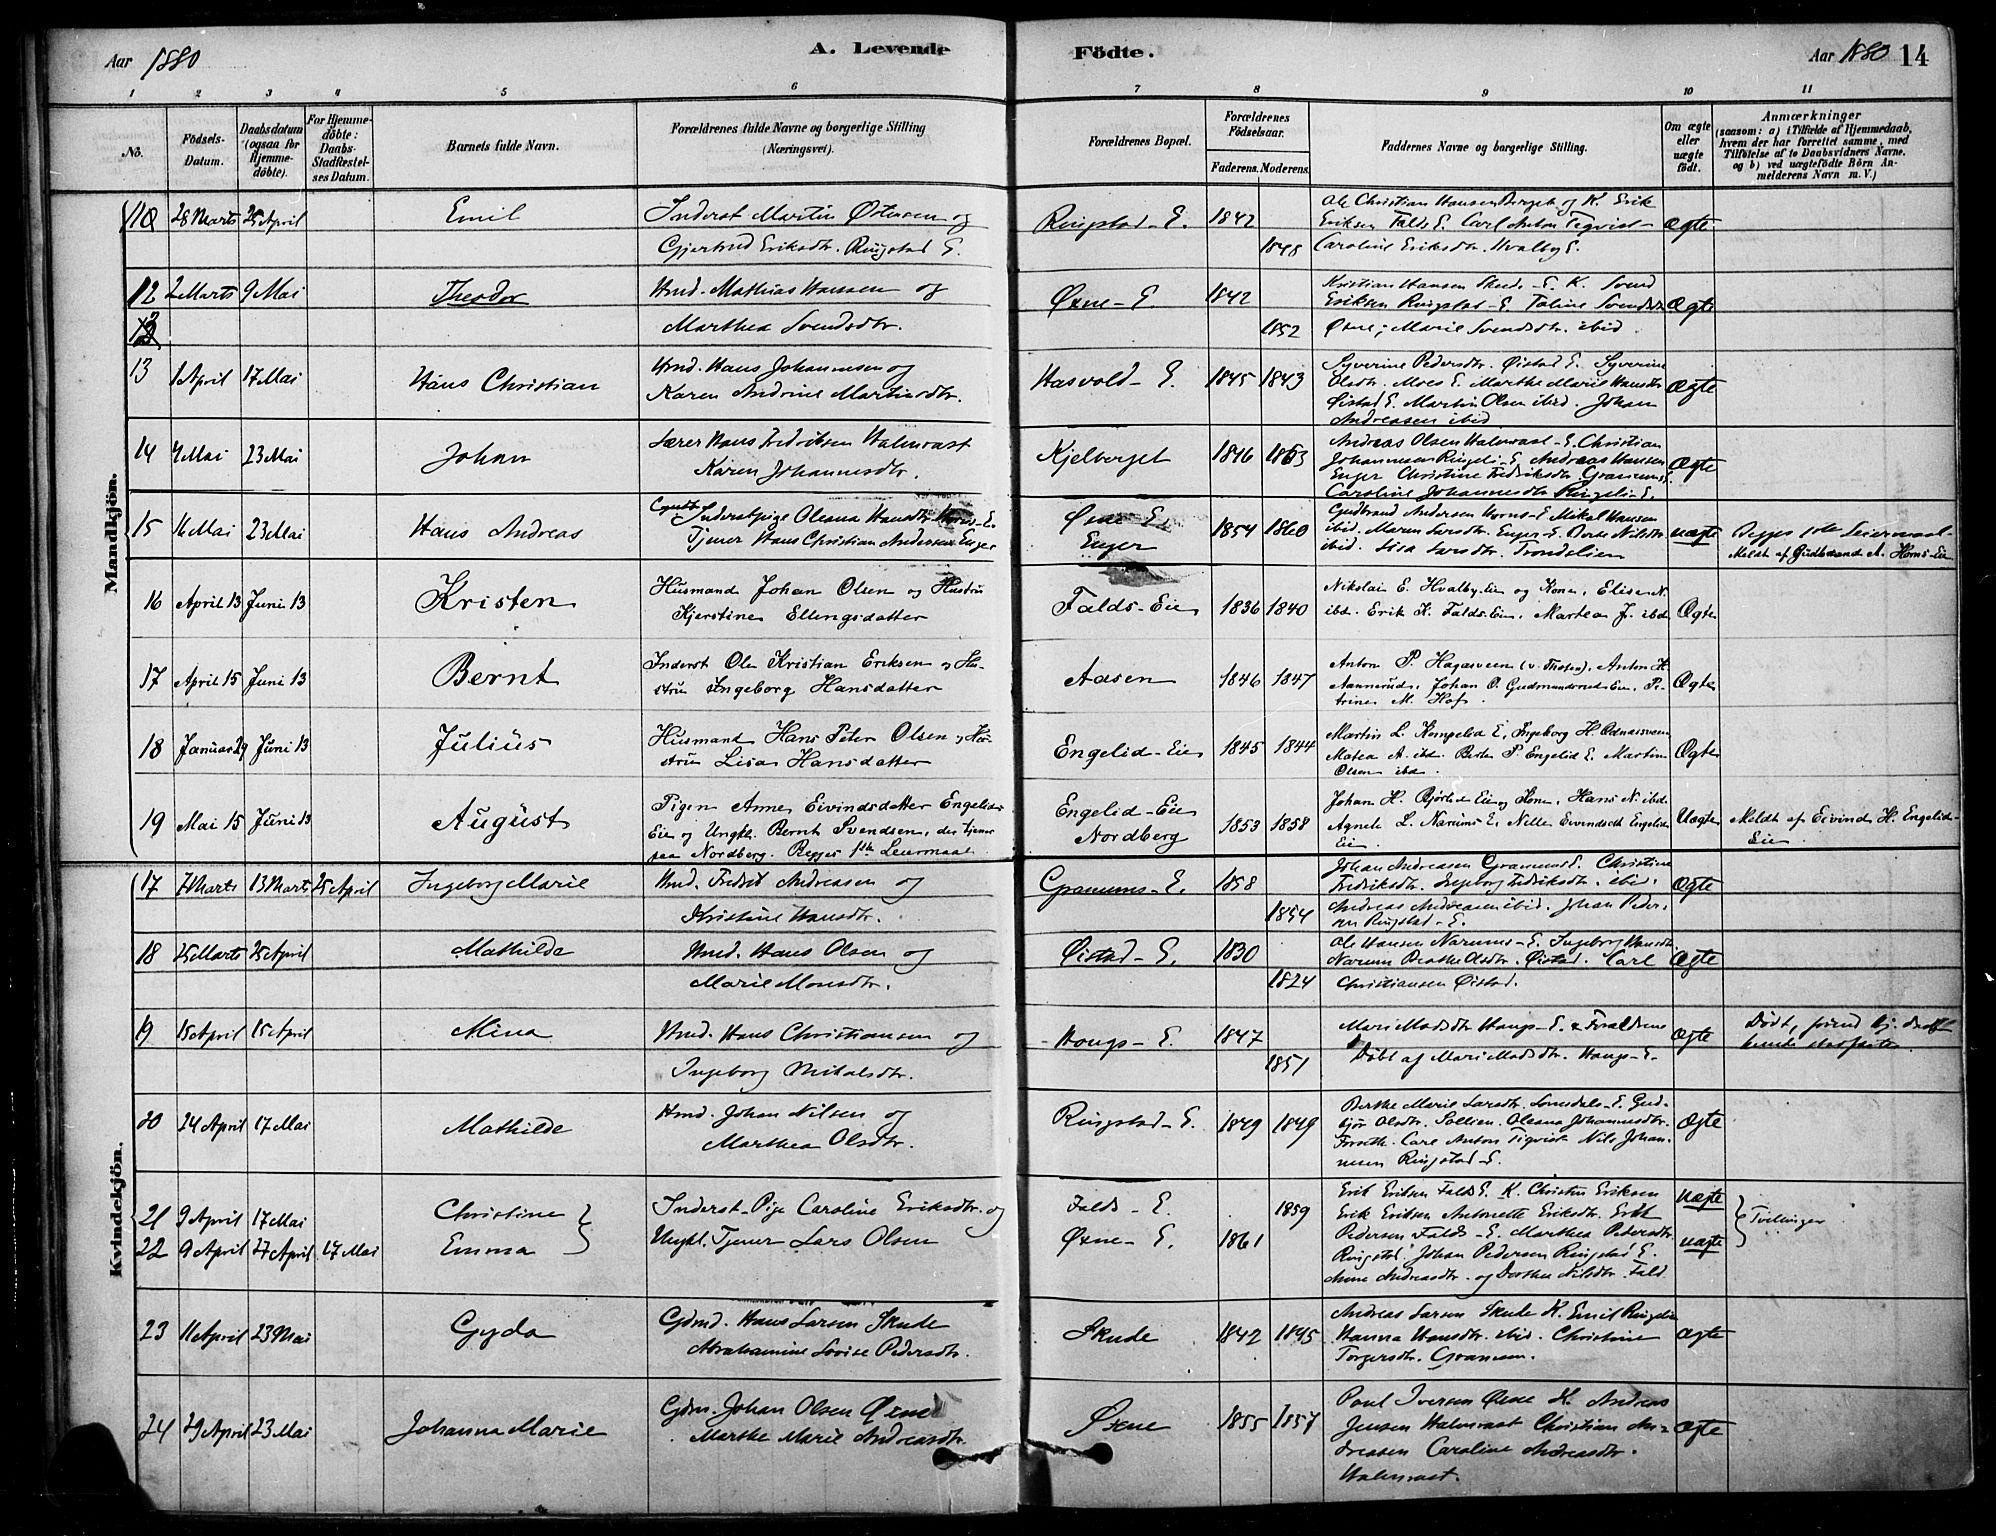 Aar 1880
A. Levende
Födte.
Aar 1880 14
1 2 3 4 5 6 7 8 9 10 11
No.
Födsels-Datum.
Daabsdatum (ogsaa for Hjemme-döbte).
For Hjemme-döbte: Daabs-Stadfæstel-ses Datum.
Barnets fulde Navn.
Forældrenes fulde Navne og borgerlige Stilling
(Næringsvei).
Forældrenes Bopæl.
Forældrenes Födselsaar.
Faderens. Moderens.
Faddernes Navne og borgerlige Stilling.
Om ægte eller uægte födt.
Anmærkninger
(saasom: a) i Tilfælde af Hjemmedaab,
hvem der har forrettet samme, med
Tilföielse af to Daabsvidners Navne.
og b) ved uægtefödte Börn An-
melderens Navn m. V.)
Mandkjön.
28 Marts 25 April Emil Inderst Martin Østensen og Ringstad-E. 1842 Ægte
Gjertrud Eriksdtr. Ringstad E. 1848 Caroline Eriksdtr. Hvalby E.
12 2 Marts 9 Mai Theodor Hmd. Mathias Hansen og Øxne-E 1842 Eriksen Ringstad-E Ægte
Marthea Svendsdtr. 1852 Øxne; Marie Svendsdtr. ibid.
13 1 April 17 Mai Hans Christian Hmd. Hans Johannesen og Hasvold-E. 1845 1843 Syverine Pedersdtr. Øistad E. Syverine Ægte
Karen Andrine Martinsdtr. Olsdtr. Moes E. Marthe Marie Hansdtr
Øistad E. Martin Olsen ibid. Johan
Andreasen ibid
14 4 Mai 23 Mai Johan Hans Fredriksen Halmrast Kjelberget 1846 Andreas Olsen Halmrast-E. Christian Ægte
Karen Johannesdtr. Johannesen Ringeli-E Andreas Hansen
Enger Christine Fredriksdtr. Granums E.
Caroline Johannesdtr Ringeli-E.
15 16 Mai 23 Mai Hans Andreas Inderstpige Oleana Hansdtr Øxne-E. 1854 1860 Gudbrand Andersen Horns-E Mikal Hansen uægte
Tjener Hans Christian Andersen Enger Enger ibid. Maren Larsdtr. Enger-E. Berte Nilsdtr.
ibid. Lisa Larsdtr.
Begges 1ste Leiermaal
Meldt af Gudbrand A. Horns-Eie
16 April 13 Juni 13 Kristen Husmand Johan Olsen og Hustru Falds-Eie 1836 1840 Nikolai E. Hvalby-Eie og Kone, Elise N. Ægte
Kjerstine Ellingsdatter ibd. Erik K. Falds-Eie, Martea J. ibd
17 April 15 Juni 13 Bernt Inderst Ole Kristian Eriksen og Hu- Aasen 1846 1847 Anton P. Hagasveen (v. Thoten), Anton H. Ægte
stru Ingeborg Hansdatter Aannerud, Johan O. Gudmundsruds Eie, Pe-
trine M. Hof.
18 Januar 29 Juni 13 Julius Husmand Hans Peter Olsen og Hu- Engelid-Eie 1845 1844 Martin L. Kompelid E, Ingeborg H. Ægte
stru Lisa Hansdatter Matea A. ibd. Berte P. Engelid E. Martin
Olsen ibd.
19 Mai 15 Juni 13 August Pigen Anne Eivindsdatter Engelids Engelid-Eie 1853 1858 Johan H. Bjørlid Eie og Kone, Hans N. ibd. Uægte
Eie og Ungk. Bernt Svendsen, der tjener Nordberg Agnete L. Narums E. Nille Eivindsdtr Engelids
paa Nordberg. Begges 1ste Leiermaal. Eie.
Meldt af Eivind H. Engelid-
Eie.
Kvindekjön.
17 7 Marts 13 Marts 25 April Ingeborg Marie Hmd. Fredrik Andreasen og Granums-E. 1858 Johan Andreasen Granums E. Christine Ægte
Fredriksdtr. Ingeborg Fredriksdtr. ibid.
Kristine Hansdtr. 1854 Andreas Andreasen ibid. Johan Peder-
sen Ringstad-E.
18 25 Marts 25 April Mathilde Hmd. Hans Olsen og Øistad-E. 1830 Ole Hansen Narums-E. Ingeborg Hansdtr. Ægte
Narum Berthe Olsdtr. Øistad. Carl
Marie Monsdtr. 1824 Christiansen Øistad.
19 15 April 15 April Mina Hmd. Hans Christiansen og Hougs-E. 1847 Mari Madsdtr Haugs-E. & Forældrene Ægte
Ingeborg Mikalsdtr. 1851 Døbt af Mari Madsdtr. Haugs-E.
Dødt, førend Hj. daaben
kunde stadfæstes
20 24 April 17 Mai Mathilde Hmd. Johan Nilsen og Ringstad-E. 1849 1849 Berthe Marie Larsdtr. E. Gud- Ægte
Marthea Olsdtr. bjør Olsdtr. Sollien. Oleana Johannesdtr.
Carl Anton Tiqvist Nils Johan-
nesen Ringstad-E.
21 9 April 17 Mai Christine Inderst-Pige Caroline Eriksdtr. og Falds-E. 1859 Erik Eriksen Falds E. K. Christen Eriksen uægte
Erik Eriksen Antonette Eriksdtr. Erik
22 9 April 27 April 17 Mai Emma Ungk. Tjener Lars Olsen Øxne-E. 1861 Pedersen Falds-E. Marthea Pedersdtr. uægte
Ringstad, Johan Pedersen Ringstad E.
Anne Andreasdtr. og Dorthea Nilsdtr. Fald
Tvillinger
23 11 April 23 Mai Gyda Gdmd. Hans Larsen Skude Skude 1842 1845 Andreas Larsen Skude K. Emil Ringelie Ægte
Abrahamine Lovise Pedersdtr. Hanna Hansdtr. ibid. Christine
Torgersdtr. Granum.
24 29 April 23 Mai Johanna Marie Gdm. Johan Olsen Øxne Øxne 1855 1857 Poul Iversen Øxne K. Andreas Ægte
Marthe Marie Andreasdtr. Jensen Halmrast Christian An-
dreasen Caroline Andreasdtr.
Halmrast.